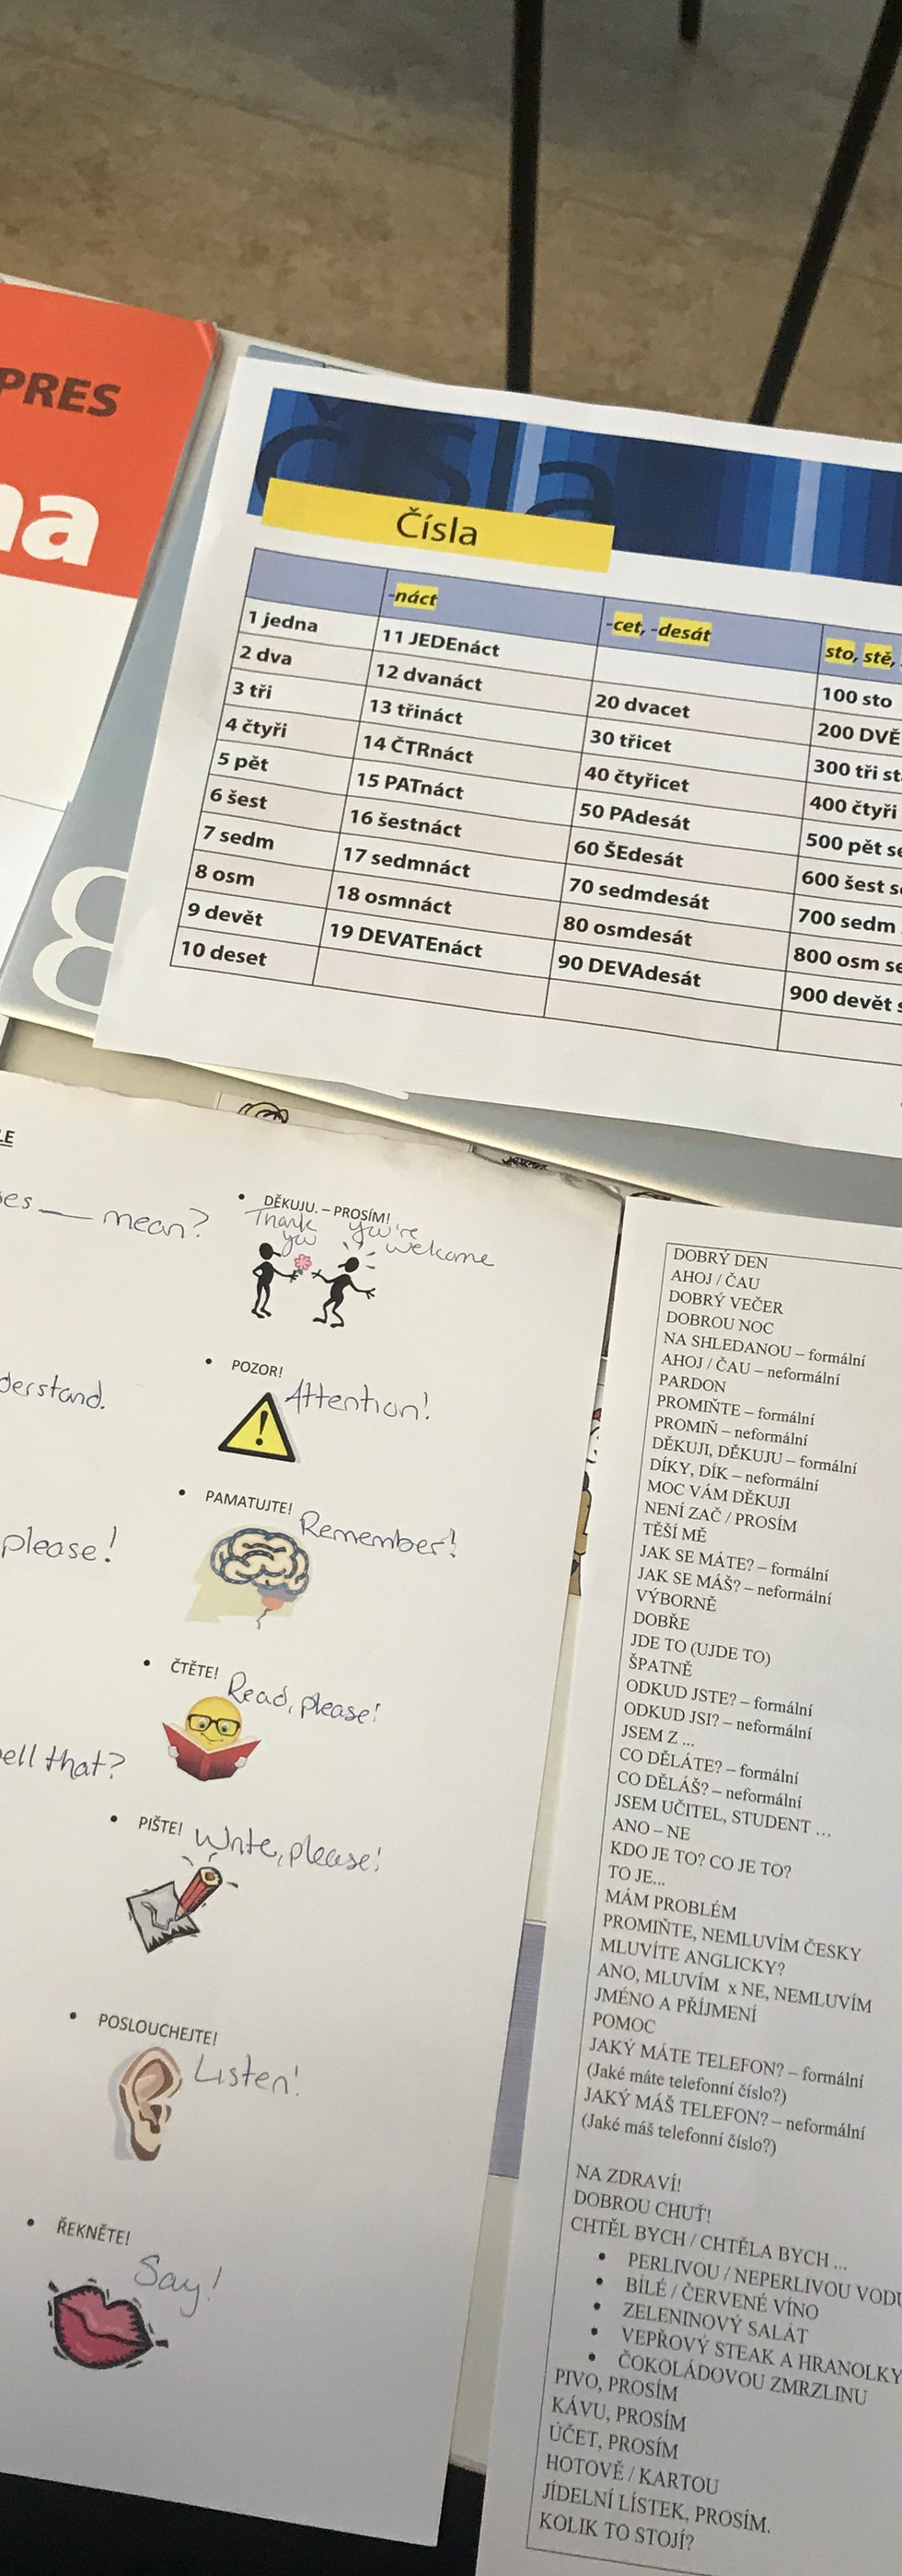 PRES
na
čísla
Čísla
-náct
-cet, -desát
sto, stě,
1 jedna
11 JEDEnáct
100 sto
2 dva
12 dvanáct
20 dvacet
200 DVĚ
3 tři
13 třináct
30 třicet
300 tři
4 čtyři
14 ČTRnáct
40 čtyřicet
400 čtyři
5 pět
15 PATnáct
50 PAdesát
500 pět
6 šest
16 šestnáct
60 ŠEdesát
600 šest
7 sedm
17 sedmnáct
70 sedmdesát
700 sedm
8 osm
18 osmnáct
80 osmdesát
800 osm
9 devět
19 DEVATEnáct
90 DEVAdesát
900 devět
10 deset
8
LE
mean?
derstand.
please!
ell that?
• DĚKUJU. – PROSÍM!
Thank you
You're welcome
• POZOR!
Attention!
• PAMATUJTE!
Remember!
• ČTĚTE!
Read, please!
• PIŠTE!
Write, please!
• POSLOUCHEJTE!
Listen!
• ŘEKNĚTE!
Say!
DOBRÝ DEN
AHOJ / ČAU
DOBRÝ VEČER
DOBROU NOC
NA SHLEDANOU – formální
AHOJ / ČAU – neformální
PARDON
PROMIŇTE – formální
PROMIŇ – neformální
DĚKUJI, DĚKUJU – formální
DÍKY, DÍK – neformální
MOC VÁM DĚKUJI
NENÍ ZAČ / PROSÍM
TĚŠÍ MĚ
JAK SE MÁTE? – formální
JAK SE MÁŠ? – neformální
VÝBORNĚ
DOBŘE
JDE TO (UJDE TO)
ŠPATNĚ
ODKUD JSTE? – formální
ODKUD JSI? – neformální
JSEM Z ...
CO DĚLÁTE? – formální
CO DĚLÁŠ? – neformální
JSEM UČITEL, STUDENT ...
ANO – NE
KDO JE TO? CO JE TO?
TO JE...
MÁM PROBLÉM
PROMIŇTE, NEMLUVÍM ČESKY
MLUVÍTE ANGLICKY?
ANO, MLUVÍM x NE, NEMLUVÍM
JMÉNO A PŘÍJMENÍ
POMOC
JAKÝ MÁTE TELEFON? – formální
(Jaké máte telefonní číslo?)
JAKÝ MÁŠ TELEFON? – neformální
(Jaké máš telefonní číslo?)
NA ZDRAVÍ!
DOBROU CHUŤ!
CHTĚL BYCH / CHTĚLA BYCH ...
• PERLIVOU / NEPERLIVOU VODU
• BÍLÉ / ČERVENÉ VÍNO
• ZELENINOVÝ SALÁT
• VEPŘOVÝ STEAK A HRANOLKY
• ČOKOLÁDOVOU ZMRZLINU
PIVO, PROSÍM
KÁVU, PROSÍM
ÚČET, PROSÍM
HOTOVĚ / KARTOU
JÍDELNÍ LÍSTEK, PROSÍM.
KOLIK TO STOJÍ?